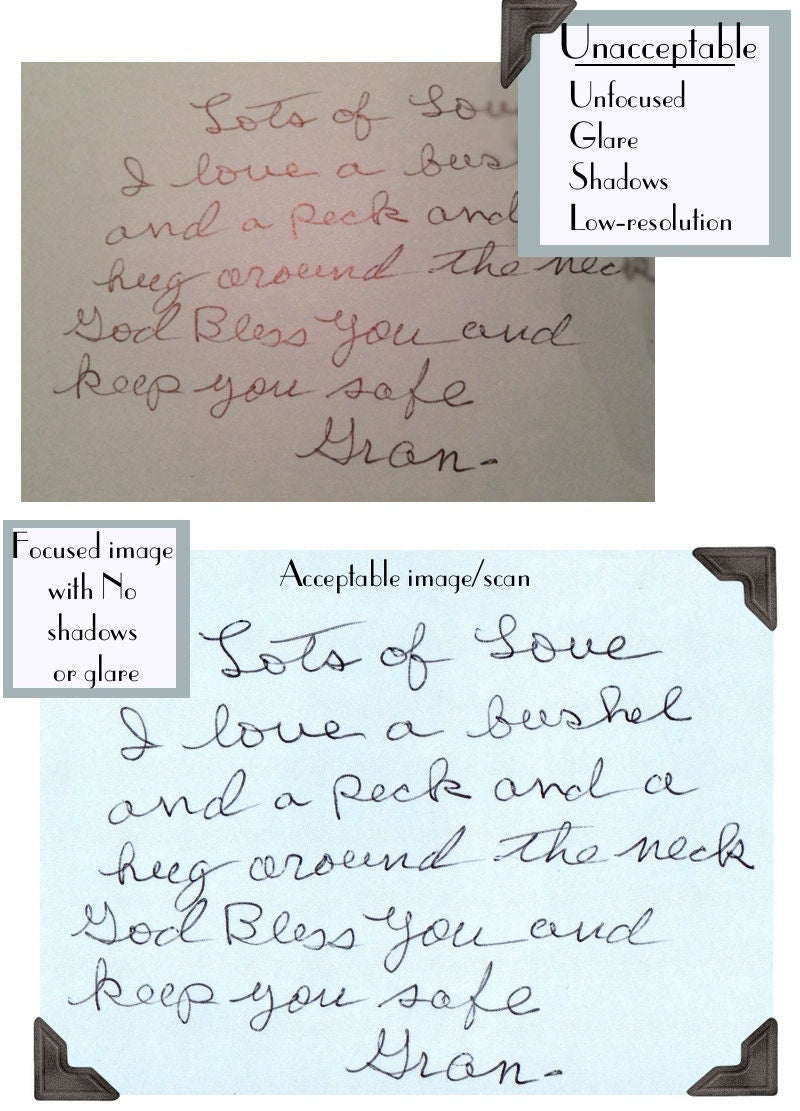 Unacceptable
Unfocused
Glare
Shadows
Low-resolution
Lots of
I love a
and a peck and
hug around the neck
God Bless You and
keep you safe
Gran-
Focused image
with No
shadows
or glare
Acceptable image/scan
Lots of Love
I love a bushel
and a peck and a
hug around the neck
God Bless You and
keep you safe
Gran-